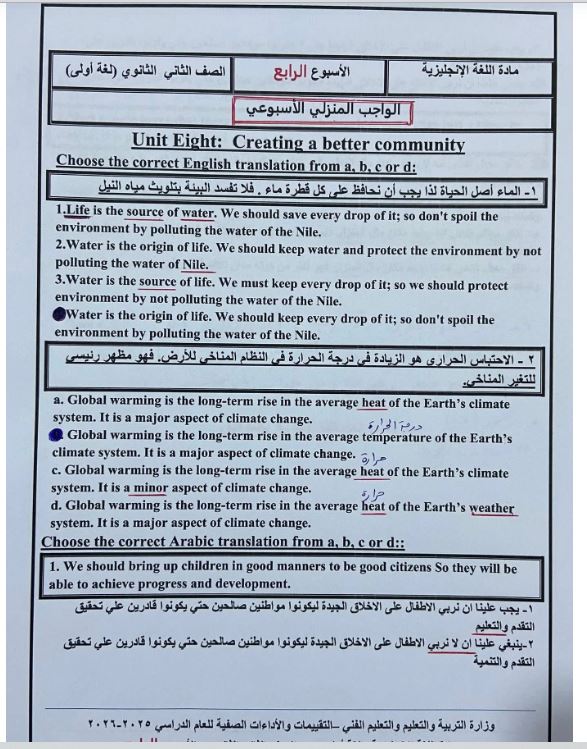 مادة اللغة الإنجليزية
الأسبوع الرابع
الصف الثاني الثانوي (لغة أولى)
الواجب المنزلي الأسبوعي
Unit Eight: Creating a better community
Choose the correct English translation from a, b, c or d:
١- الماء أصل الحياة لذا يجب أن نحافظ على كل قطرة ماء . فلا تفسد البيئة بتلويث مياه النيل
1.Life is the source of water. We should save every drop of it; so don't spoil the
environment by polluting the water of the Nile.
2.Water is the origin of life. We should keep water and protect the environment by not
polluting the water of Nile.
3.Water is the source of life. We must keep every drop of it; so we should protect
environment by not polluting the water of the Nile.
Water is the origin of life. We should keep every drop of it; so don't spoil the
environment by polluting the water of the Nile.
٢ - الاحتباس الحراري هو الزيادة في درجة الحرارة في النظام المناخي للأرض. فهو مظهر رئيسي
للتغير المناخي.
a. Global warming is the long-term rise in the average heat of the Earth's climate
system. It is a major aspect of climate change.
درجة الحرارة
Global warming is the long-term rise in the average temperature of the Earth's
climate system. It is a major aspect of climate change.
حرارة
c. Global warming is the long-term rise in the average heat of the Earth's climate
system. It is a minor aspect of climate change.
حرارة
d. Global warming is the long-term rise in the average heat of the Earth's weather
system. It is a major aspect of climate change.
Choose the correct Arabic translation from a, b, c or d::
1. We should bring up children in good manners to be good citizens So they will be
able to achieve progress and development.
١- يجب علينا ان نربي الاطفال على الاخلاق الجيدة ليكونوا مواطنين صالحين حتي يكونوا قادرين علي تحقيق
التقدم والتعليم
٢-ينبغي علينا ان لا نربي الاطفال على الاخلاق الجيدة ليكونوا مواطنين صالحين حتي يكونوا قادرين علي تحقيق
التقدم والتنمية
وزارة التربية والتعليم والتعليم الفني –التقييمات والأداءات الصفية للعام الدراسي ٢٠٢٥-٢٠٢٦